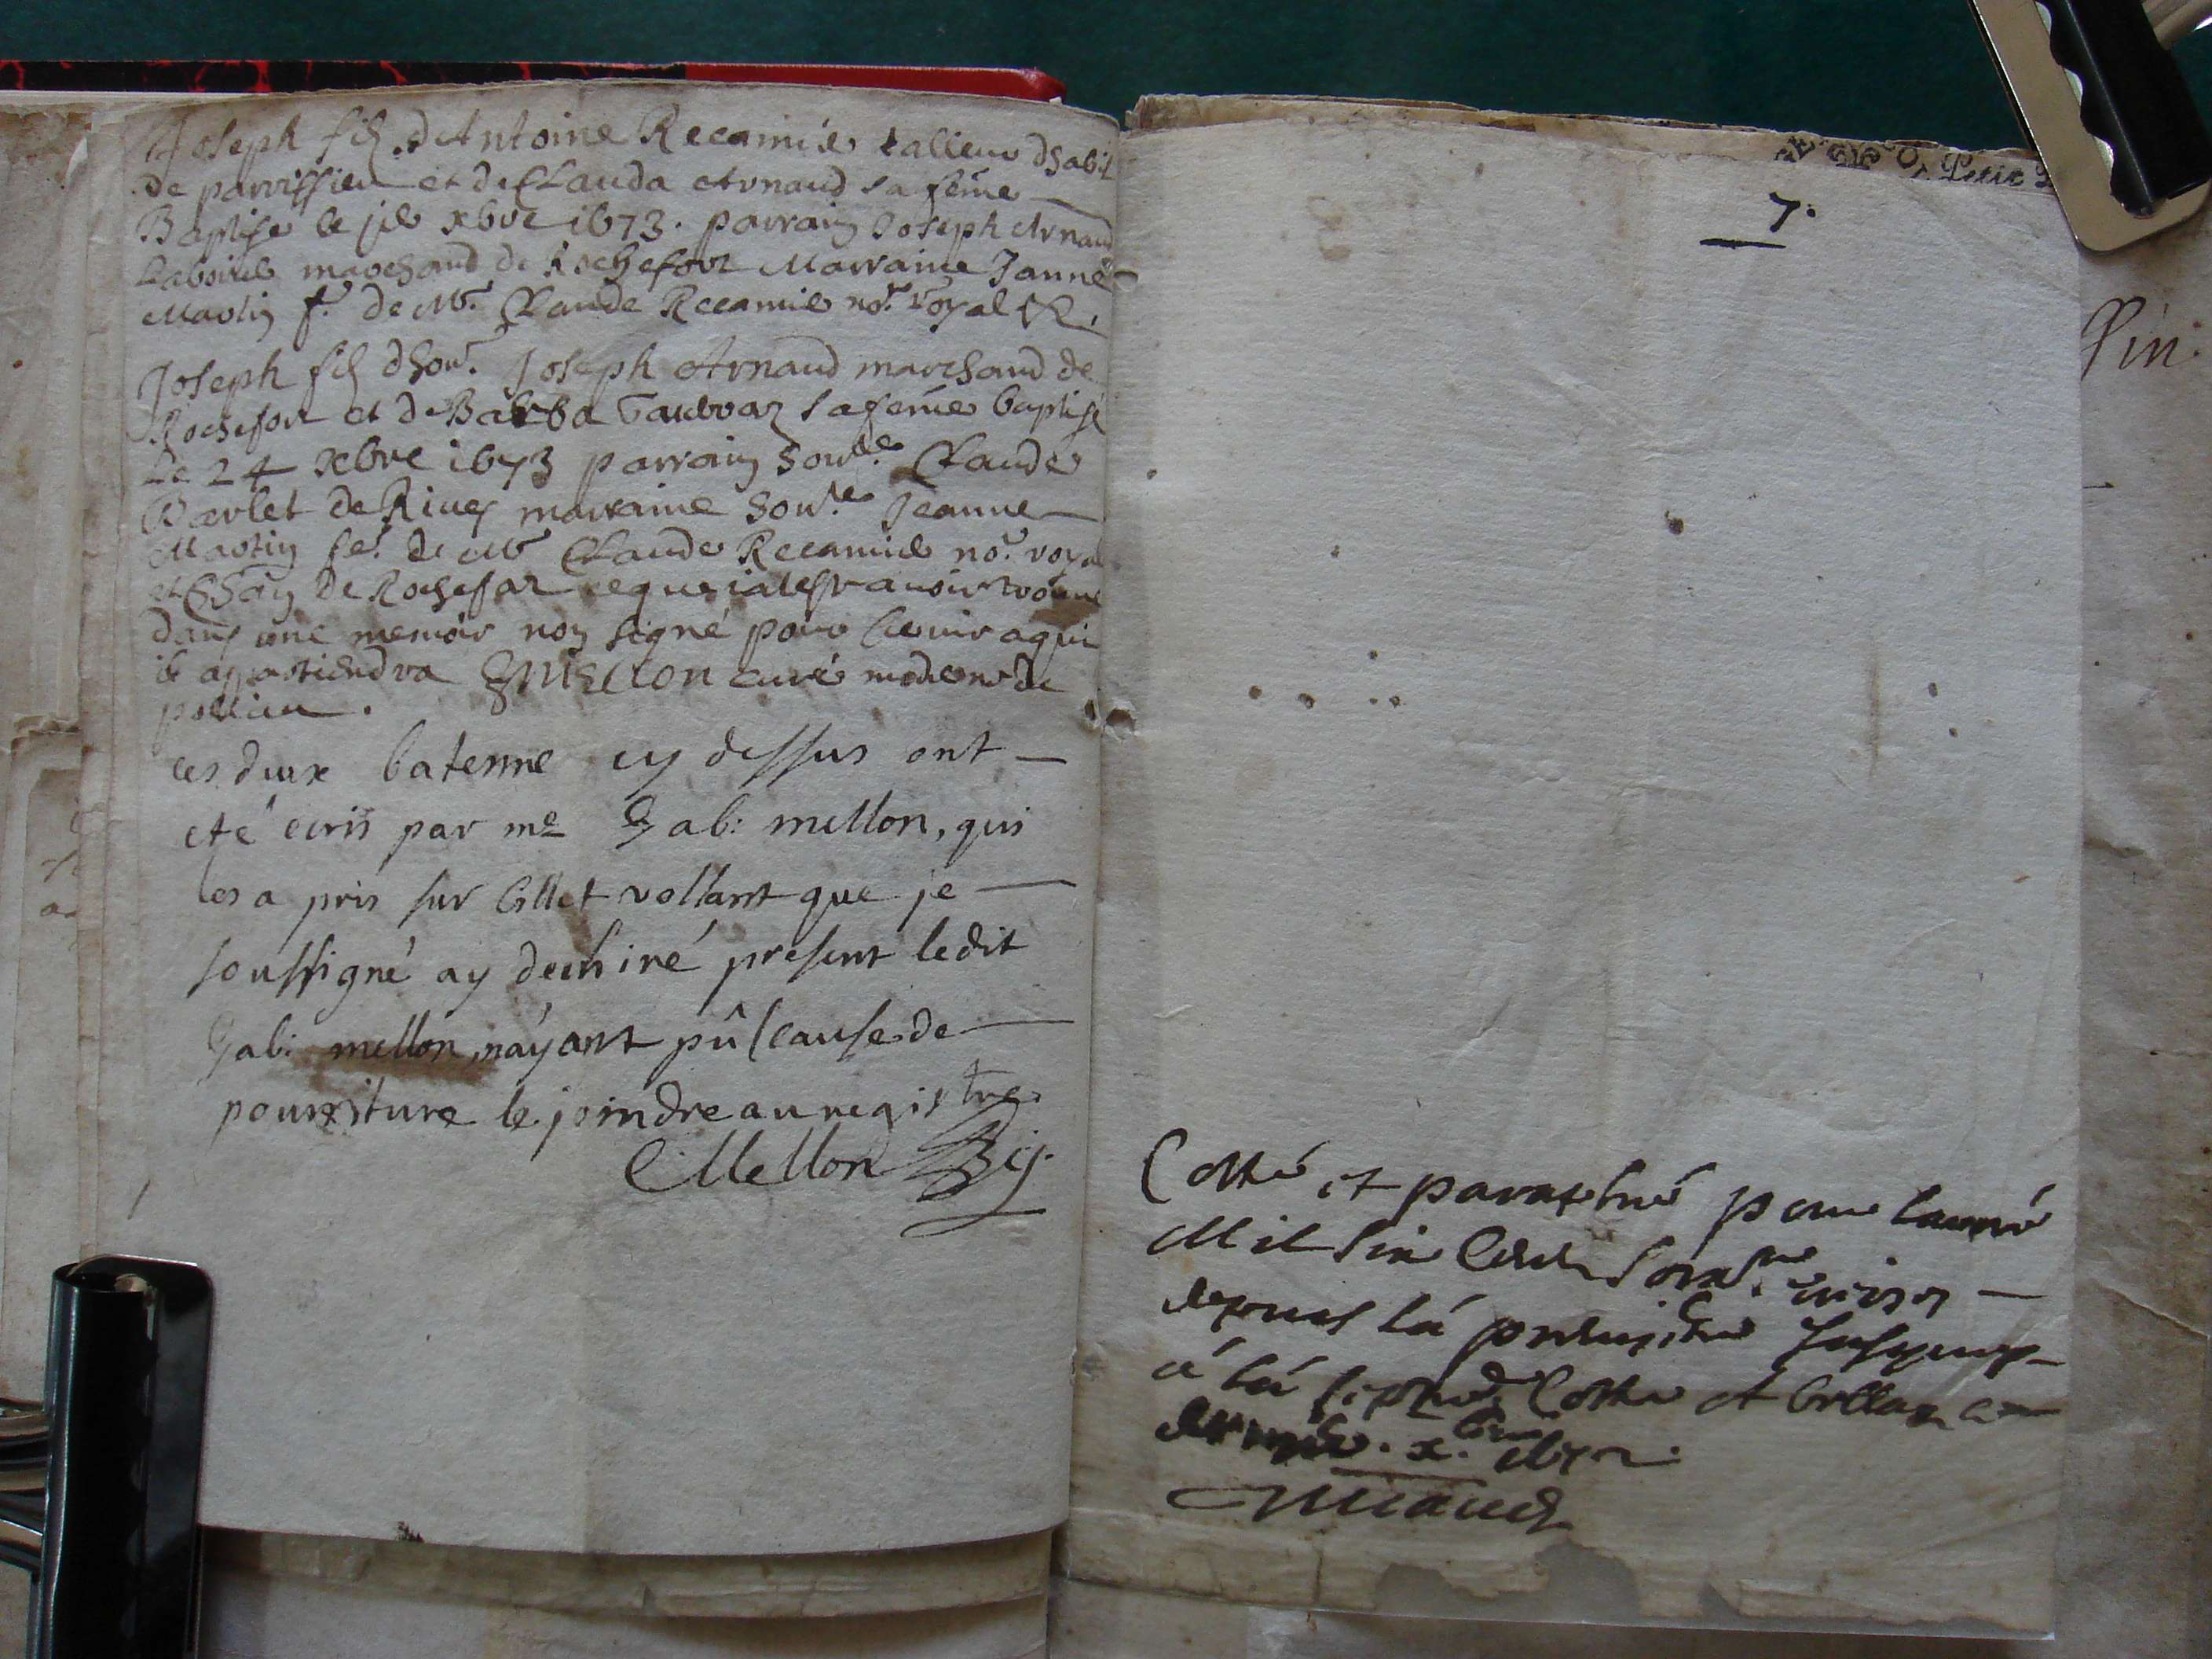 Joseph fils d'Antoine Recamié tallieur dhabit
de parvissieu et de Clauda Arnaud sa feme
Baptise le xbre 1673. parrain Joseph Arnaud
marchand de Rochefort Marraine Janne
Martin f. de Mr. Claude Recamie nore. royal &c.
Joseph fils dhon. Joseph Arnaud marchand de
Rochefort et de Barba sa feme baptisé
Le 24 xbre 1673 parrain honble. Claude
Parlet de Rives marraine hon.e Jeanne
Martin fe. de Mr Claude Recamie nore. royal
et de Rochefort avoir trouvé
dans une memoir non signé pour servir a qui
il apartiendra GMellon curé moderne de
pollieu.
ces deux bateme cy dessus ont
eté ecris par me Gab: mellon, qui
les a pris sur billet vollant que je
soussigné ay dechiré present ledit
Gab: mellon, n'ayant pû cause de
pourriture le joindre au registre.
CMellon
7.
Fin
Cotté et paraphé pour lanné
Mil six cent soixante
depuis la premiere jusques
à la Cotte et